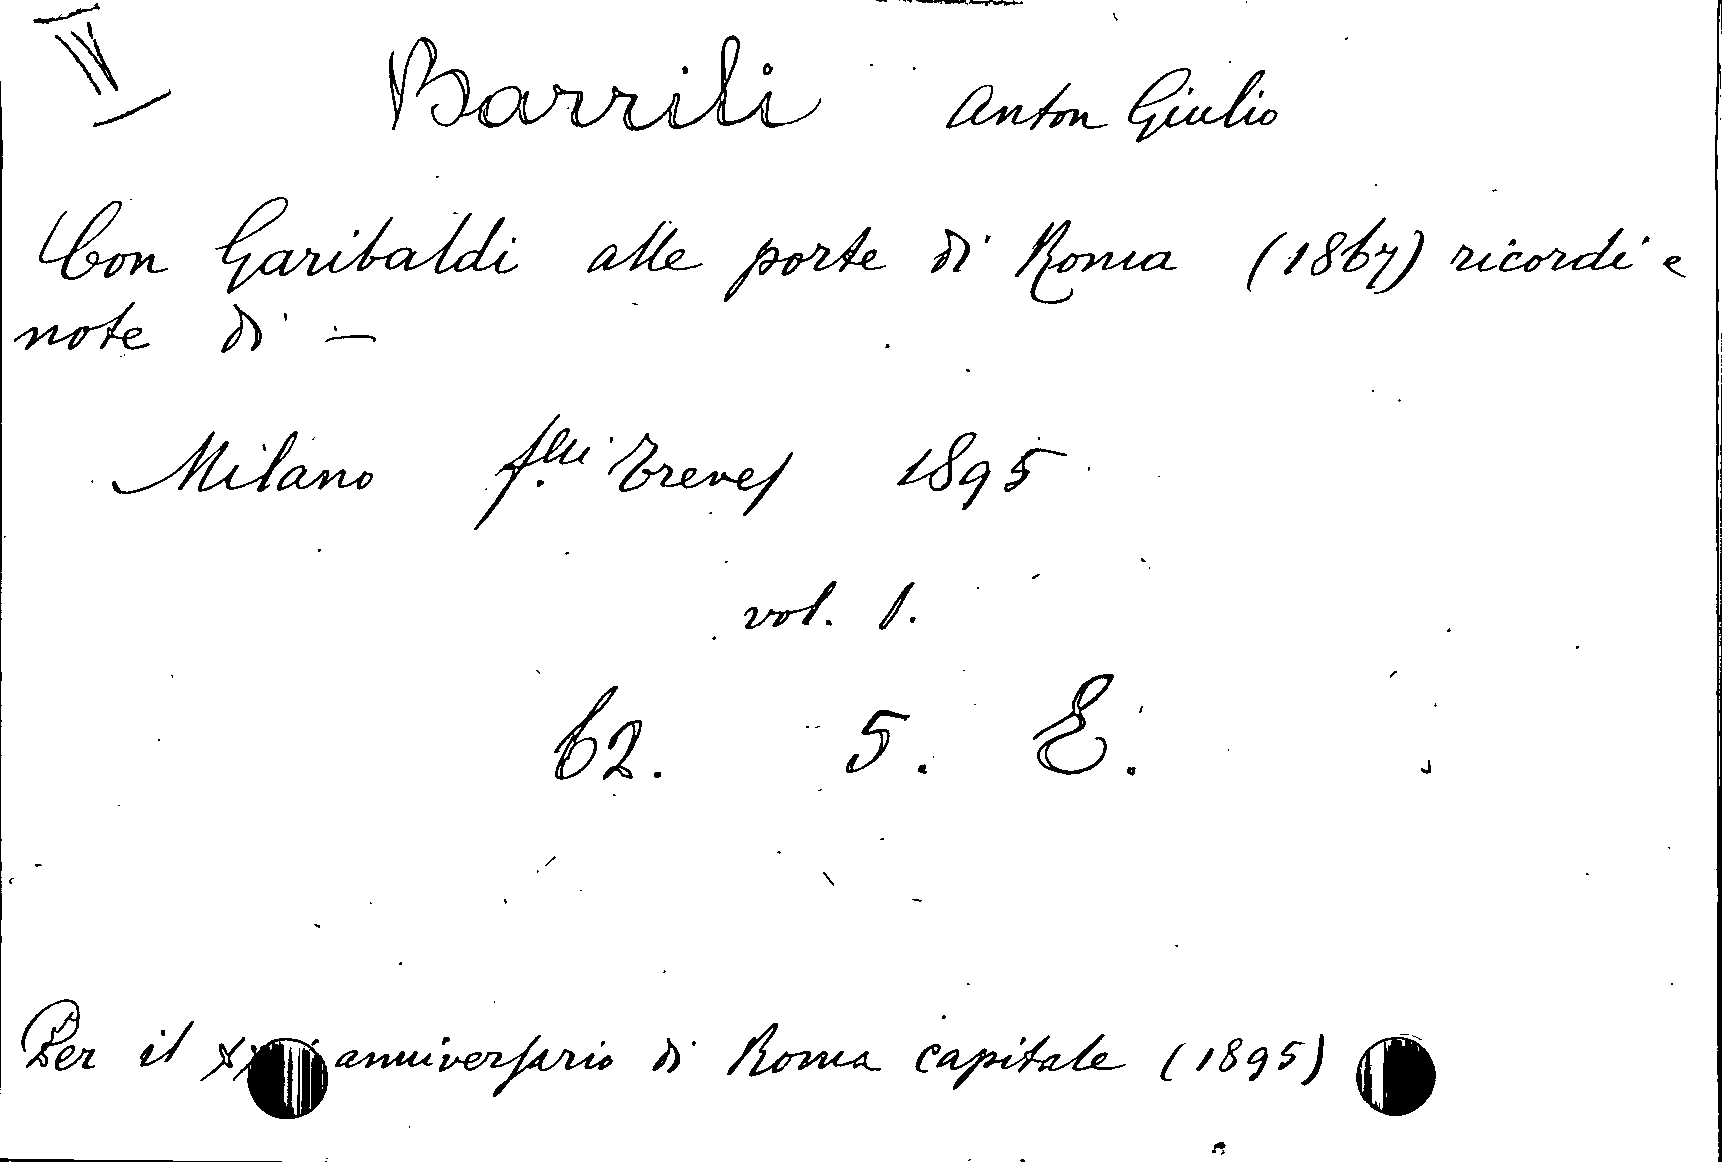 IV
Barrili Anton Giulio
Con Garibaldi alle porte di Roma (1867) ricordi e
note di —
Milano f.lli Treves 1895
vol. 1.
62. 5. E.
Per il anniversario di Roma capitale (1895)